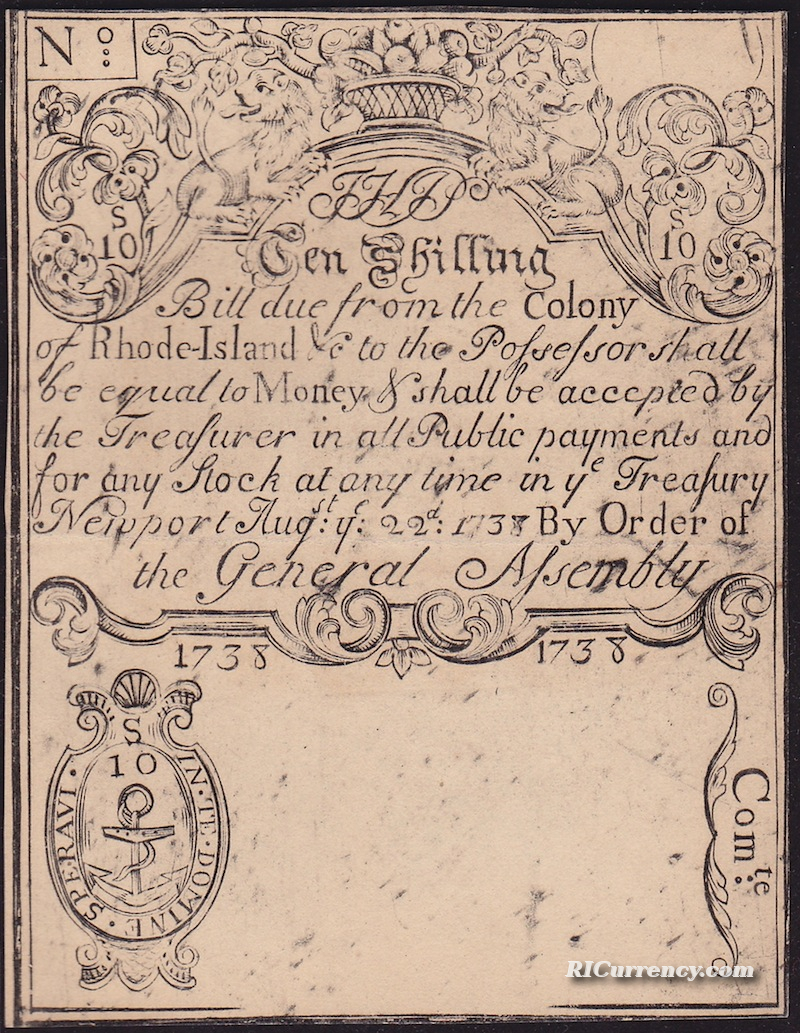 No:
S
10
S
10
Ten Shilling
Bill due from the Colony
of Rhode-Island &c to the Poſseſsor shall
be equal to Money & shall be accepted by
the Treaſurer in all Public payments and
for any Stock at any time in yᵉ Treaſury
Newport Augˢᵗ: yᵉ: 22ᵈ: 1738 By Order of
the General Aſsembly
1738
1738
S
10
IN · TE · DOMINE · SPERAVI ·
Comᵗᵉ:
RICurrency.com